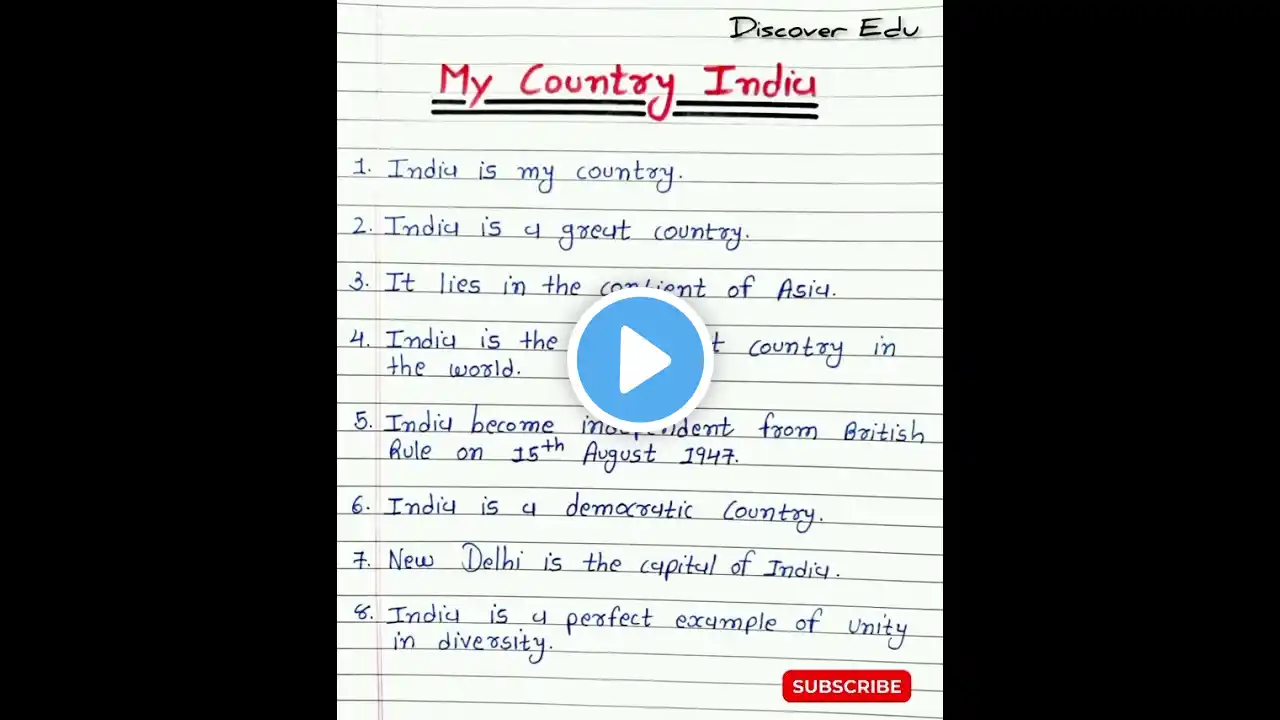 Discover Edu
My Country India
1. India is my country.
2. India is a great country.
3. It lies in the of Asia.
4. India is the country in
the world.
5. India become from British
Rule on 15th August 1947.
6. India is a democratic Country.
7. New Delhi is the capital of India.
8. India is a perfect example of unity
in diversity.
SUBSCRIBE